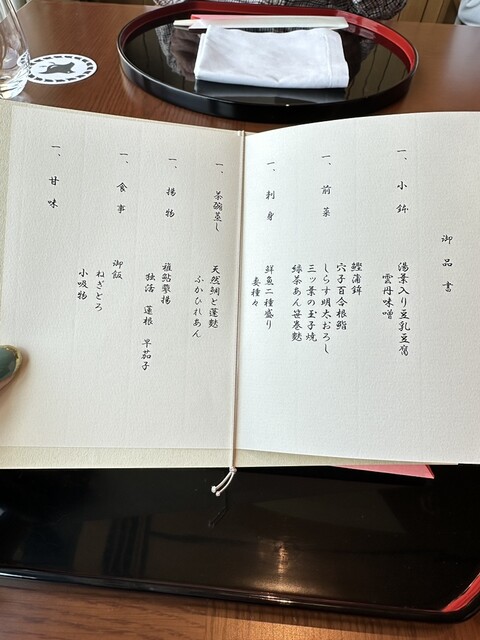 御品書
一、小鉢
湯葉入り豆乳豆腐
雲丹味噌
一、前菜
鰹蒲鉾
穴子百合根鮨
しらす明太おろし
三ッ葉の玉子焼
緑茶あん笹巻麩
一、刺身
鮮魚二種盛り
妻種々
一、茶碗蒸し
天然鯛と蓬麩
ふかひれあん
一、揚物
稚鮎飛揚
独活 蓮根 早茄子
一、食事
御飯
ねぎとろ
小吸物
一、甘味